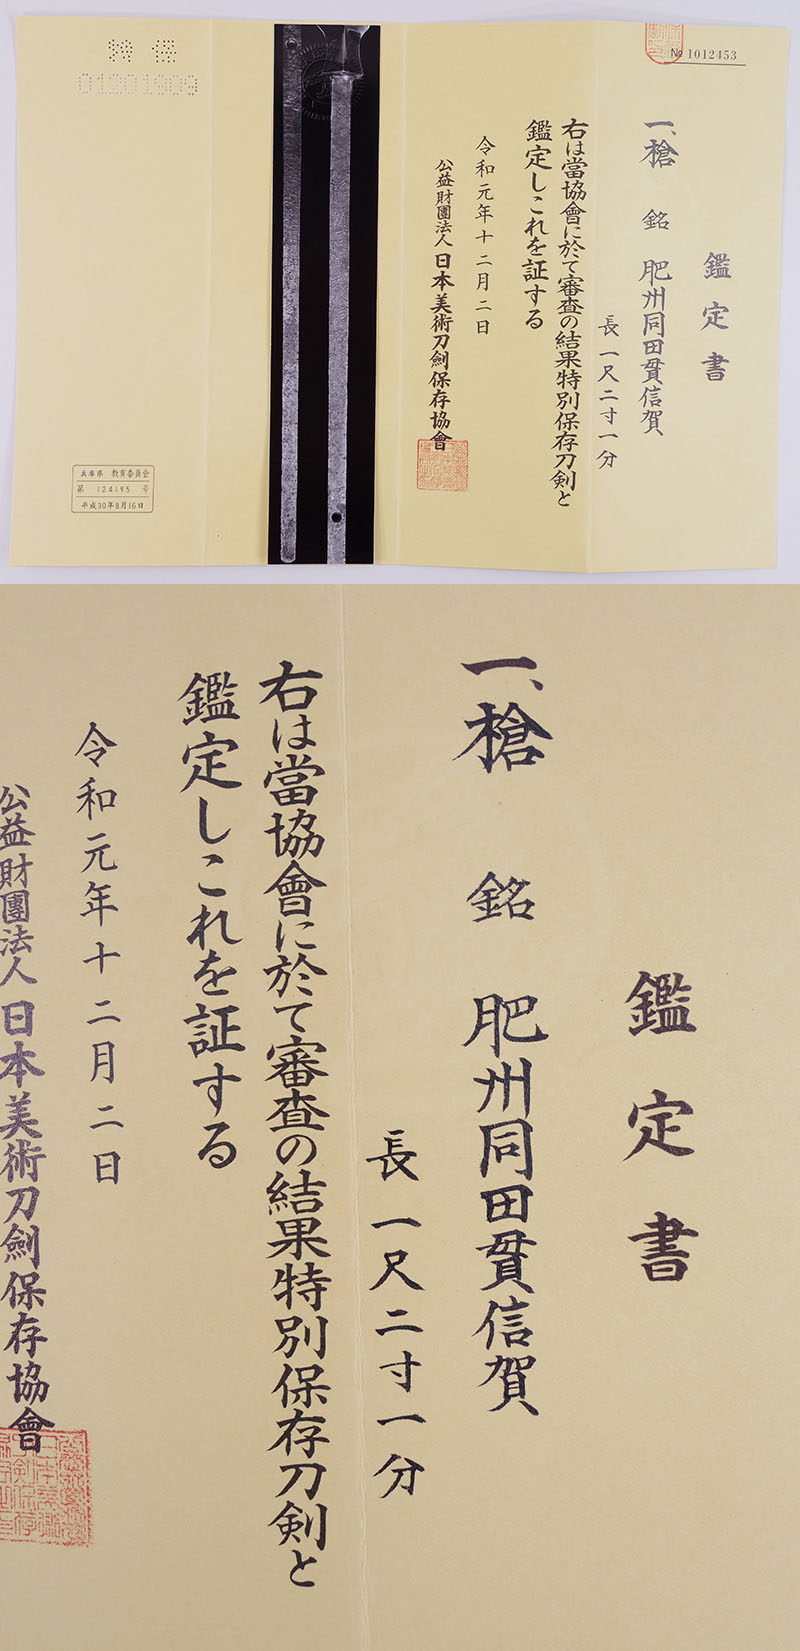 № 1012453
鑑定書
一、槍 銘 肥州同田貫信賀
長 一尺二寸一分
右は當協會に於て審査の結果特別保存刀剣と
鑑定しこれを証する
令和元年十二月二日
公益財團法人 日本美術刀劍保存協會
特保
01201909
兵庫県 教育委員会
第 124195 号
平成30年8月16日
鑑定書
一、槍 銘 肥州同田貫信賀
長 一尺二寸一分
右は當協會に於て審査の結果特別保存刀剣と
鑑定しこれを証する
令和元年十二月二日
公益財團法人 日本美術刀劍保存協會